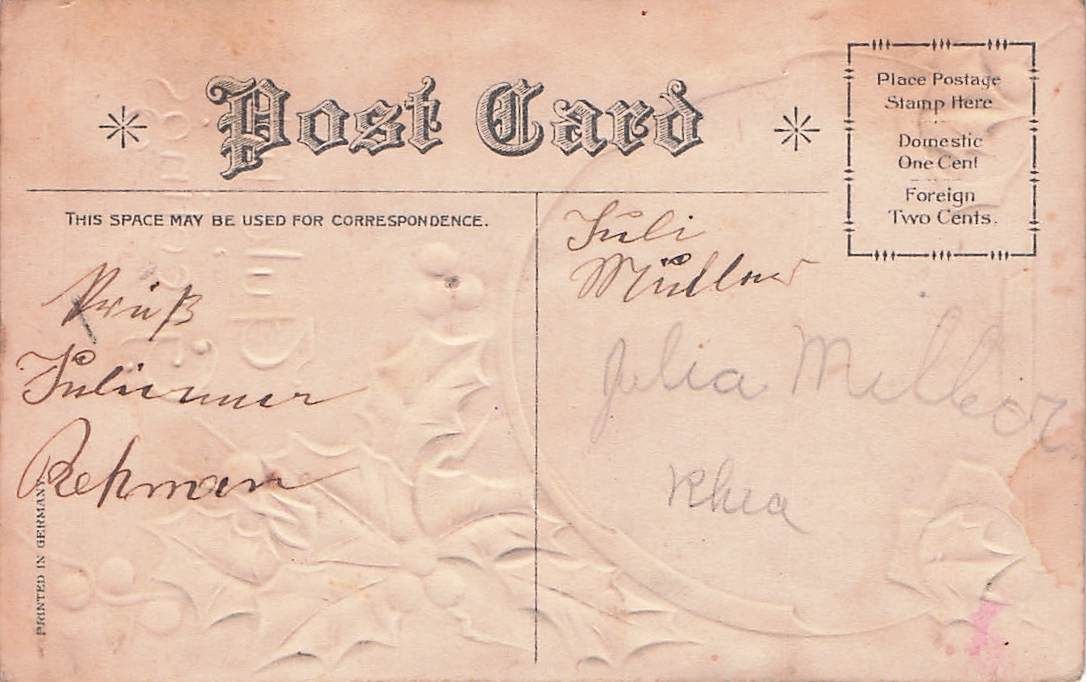 Post Card
Place Postage
Stamp Here
Domestic
One Cent
Foreign
Two Cents.
THIS SPACE MAY BE USED FOR CORRESPONDENCE.
Juli
Müllner
Julia Miller
Rhea
Gruß
Rehman
PRINTED IN GERMANY